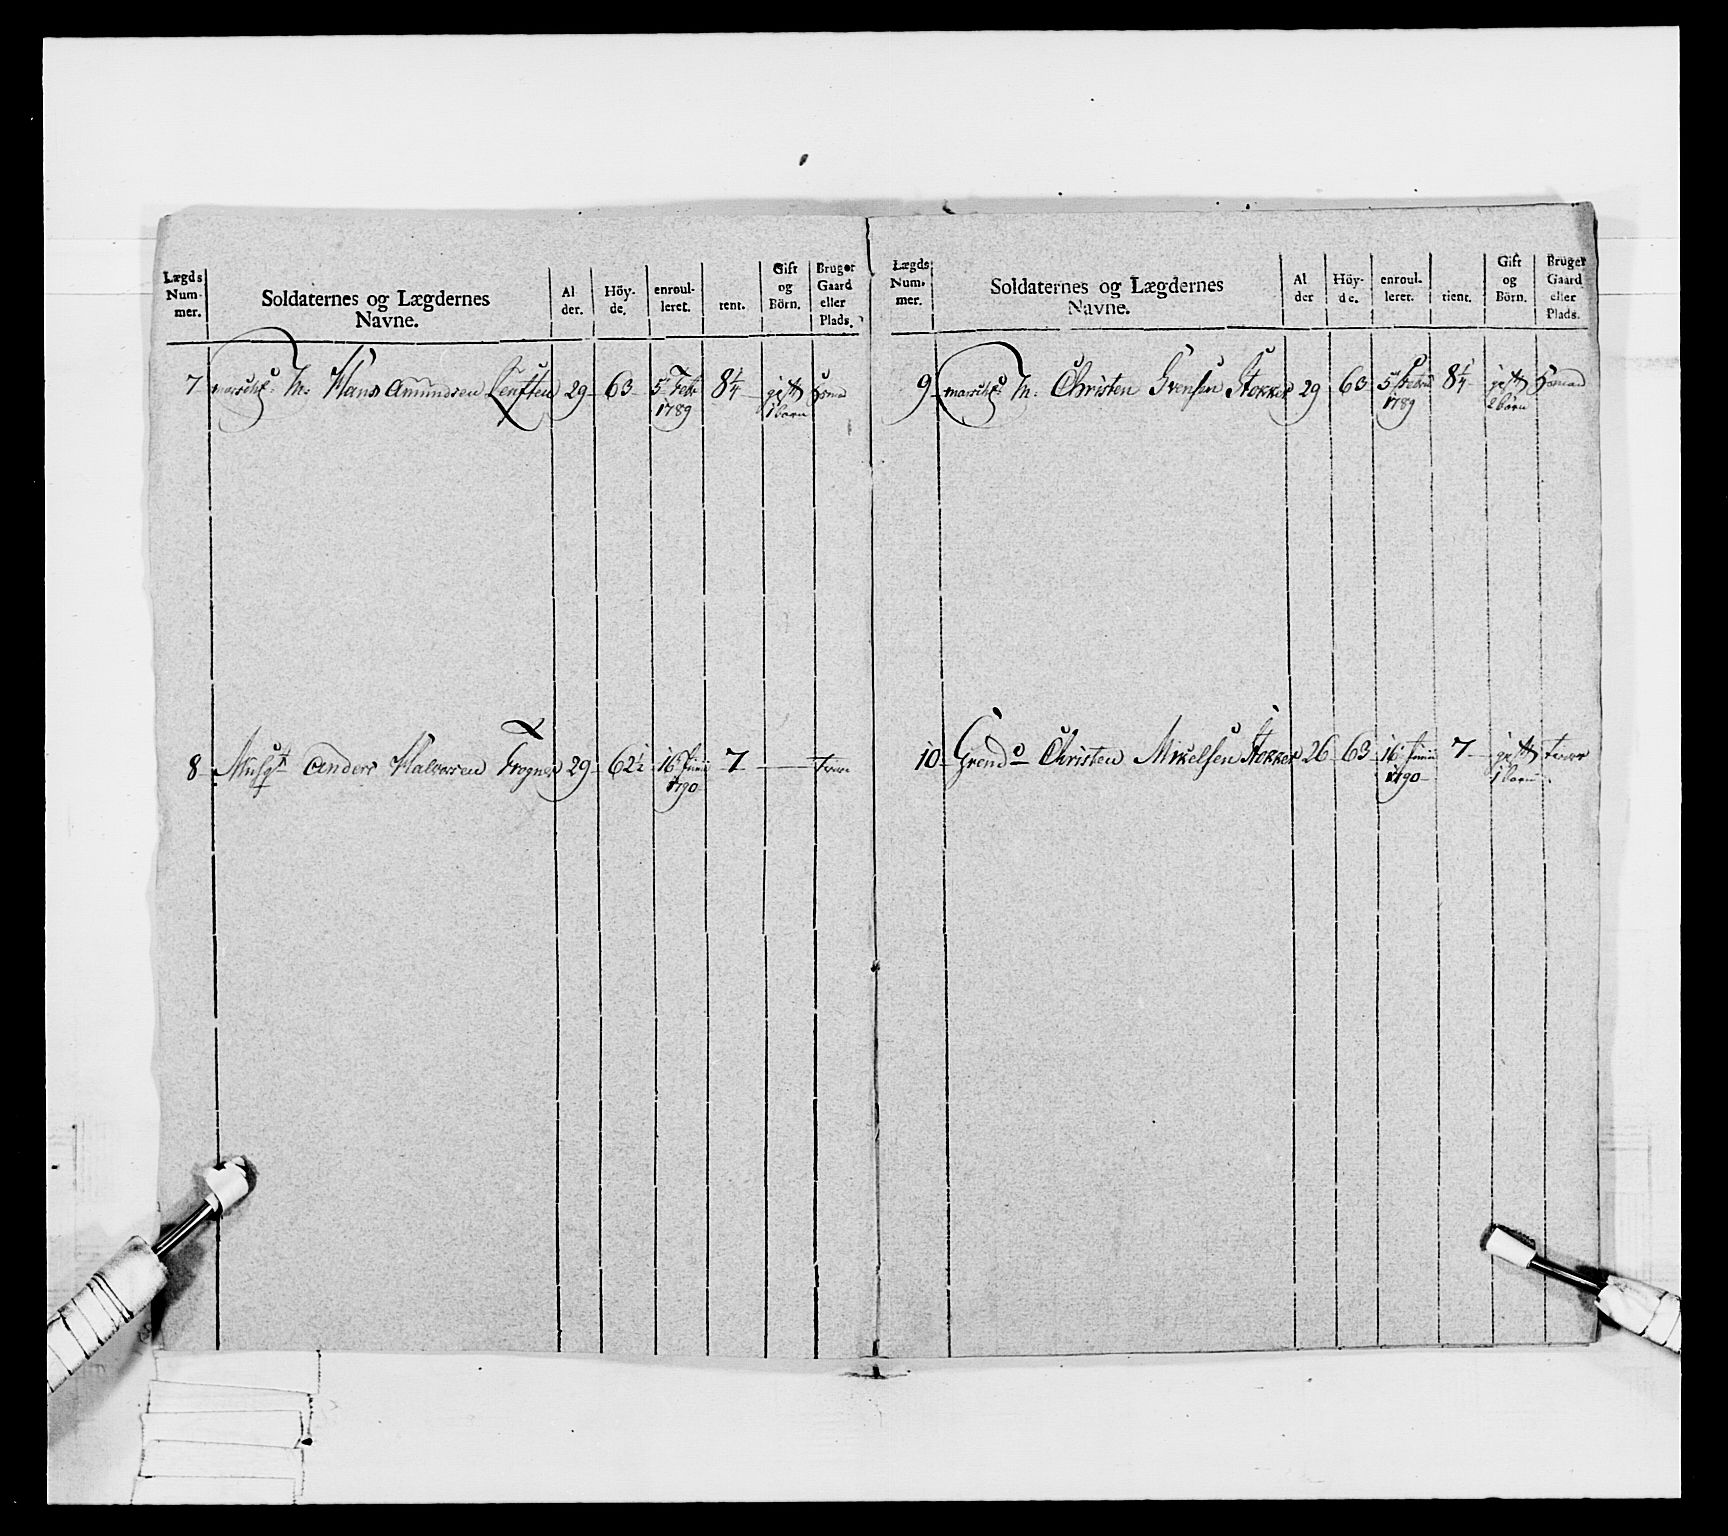 Lægds Num- mer.
Soldaternes og Lægdernes Navne.
Al der.
Höy- de.
enroul- leret.
tient.
Gift og Börn.
Bruger Gaard eller Plads.
7 M. Hans Amundsen 29 63 5 Febr 1789 8¼ gift 1 barn
8 Musqt Anders Halvorsen Frogner 29 62½ 16 Junii 1790 7
Lægds Num- mer.
Soldaternes og Lægdernes Navne.
Al der
Höy- de.
enroul- leret.
tient.
Gift og Börn.
Bruger Gaard eller Plads.
9 M. Christen Svensen Stokker 29 63 5 1789 8¼ gift 2 börn
10 Grend Christen Mikelsen Stokker 26 63 16 Junii 1790 7 gift 1 barn